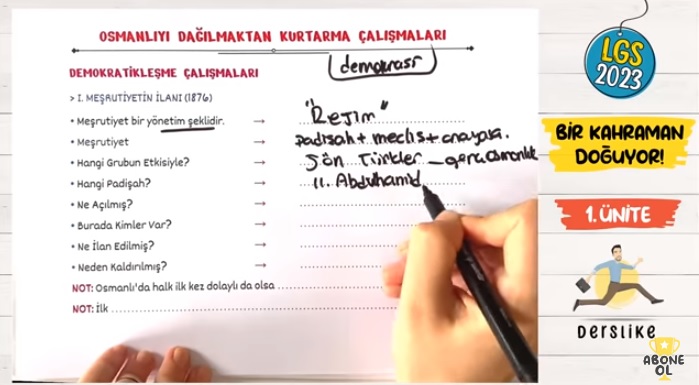 OSMANLIYI DAĞILMAKTAN KURTARMA ÇALIŞMALARI
demokrasi
DEMOKRATİKLEŞME ÇALIŞMALARI
> I. MEŞRUTİYETİN İLANI (1876)
• Meşrutiyet bir yönetim şeklidir. → "Rejim"
• Meşrutiyet → padişah + meclis + anayasa.
• Hangi Grubun Etkisiyle? → Jön Türkler – genç Osmanlılar
• Hangi Padişah? → II. Abdulhamid
• Ne Açılmış? →
• Burada Kimler Var? →
• Ne İlan Edilmiş? →
• Neden Kaldırılmış? →
NOT: Osmanlı'da halk ilk kez dolaylı da olsa
NOT: İlk
LGS
2023
BİR KAHRAMAN
DOĞUYOR!
1. ÜNİTE
DERSLİKE
ABONE
OL